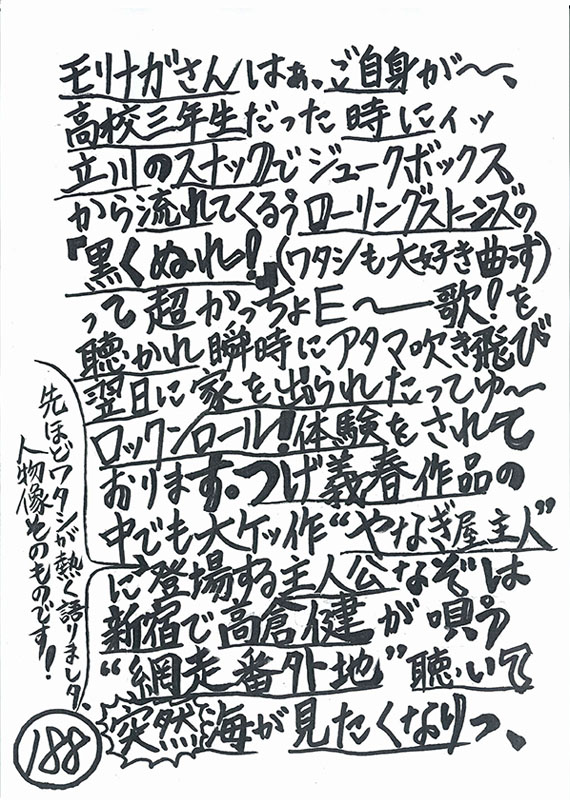 モリナガさんはぁ、ご自身が〜、
高校三年生だった時にィッ
立川のスナックでジュークボックス
から流れてくるぅローリングストーンズの
『黒くぬれ!』(ワタシも大好き曲っす)
って超かっちょE〜──歌!を
聴かれ瞬時にアタマ吹き飛び
翌日に家を出られたってゆ〜
ロックンロール!体験をされて
おります。つげ義春作品の
中でも大ケッ作“やなぎ屋主人”
に登場する主人公なぞは
新宿で高倉健が唄う
“網走番外地”聴いて
突然海が見たくなりっ、
先ほどワタシが熱く語りましタ、
人物像そのものです!
188